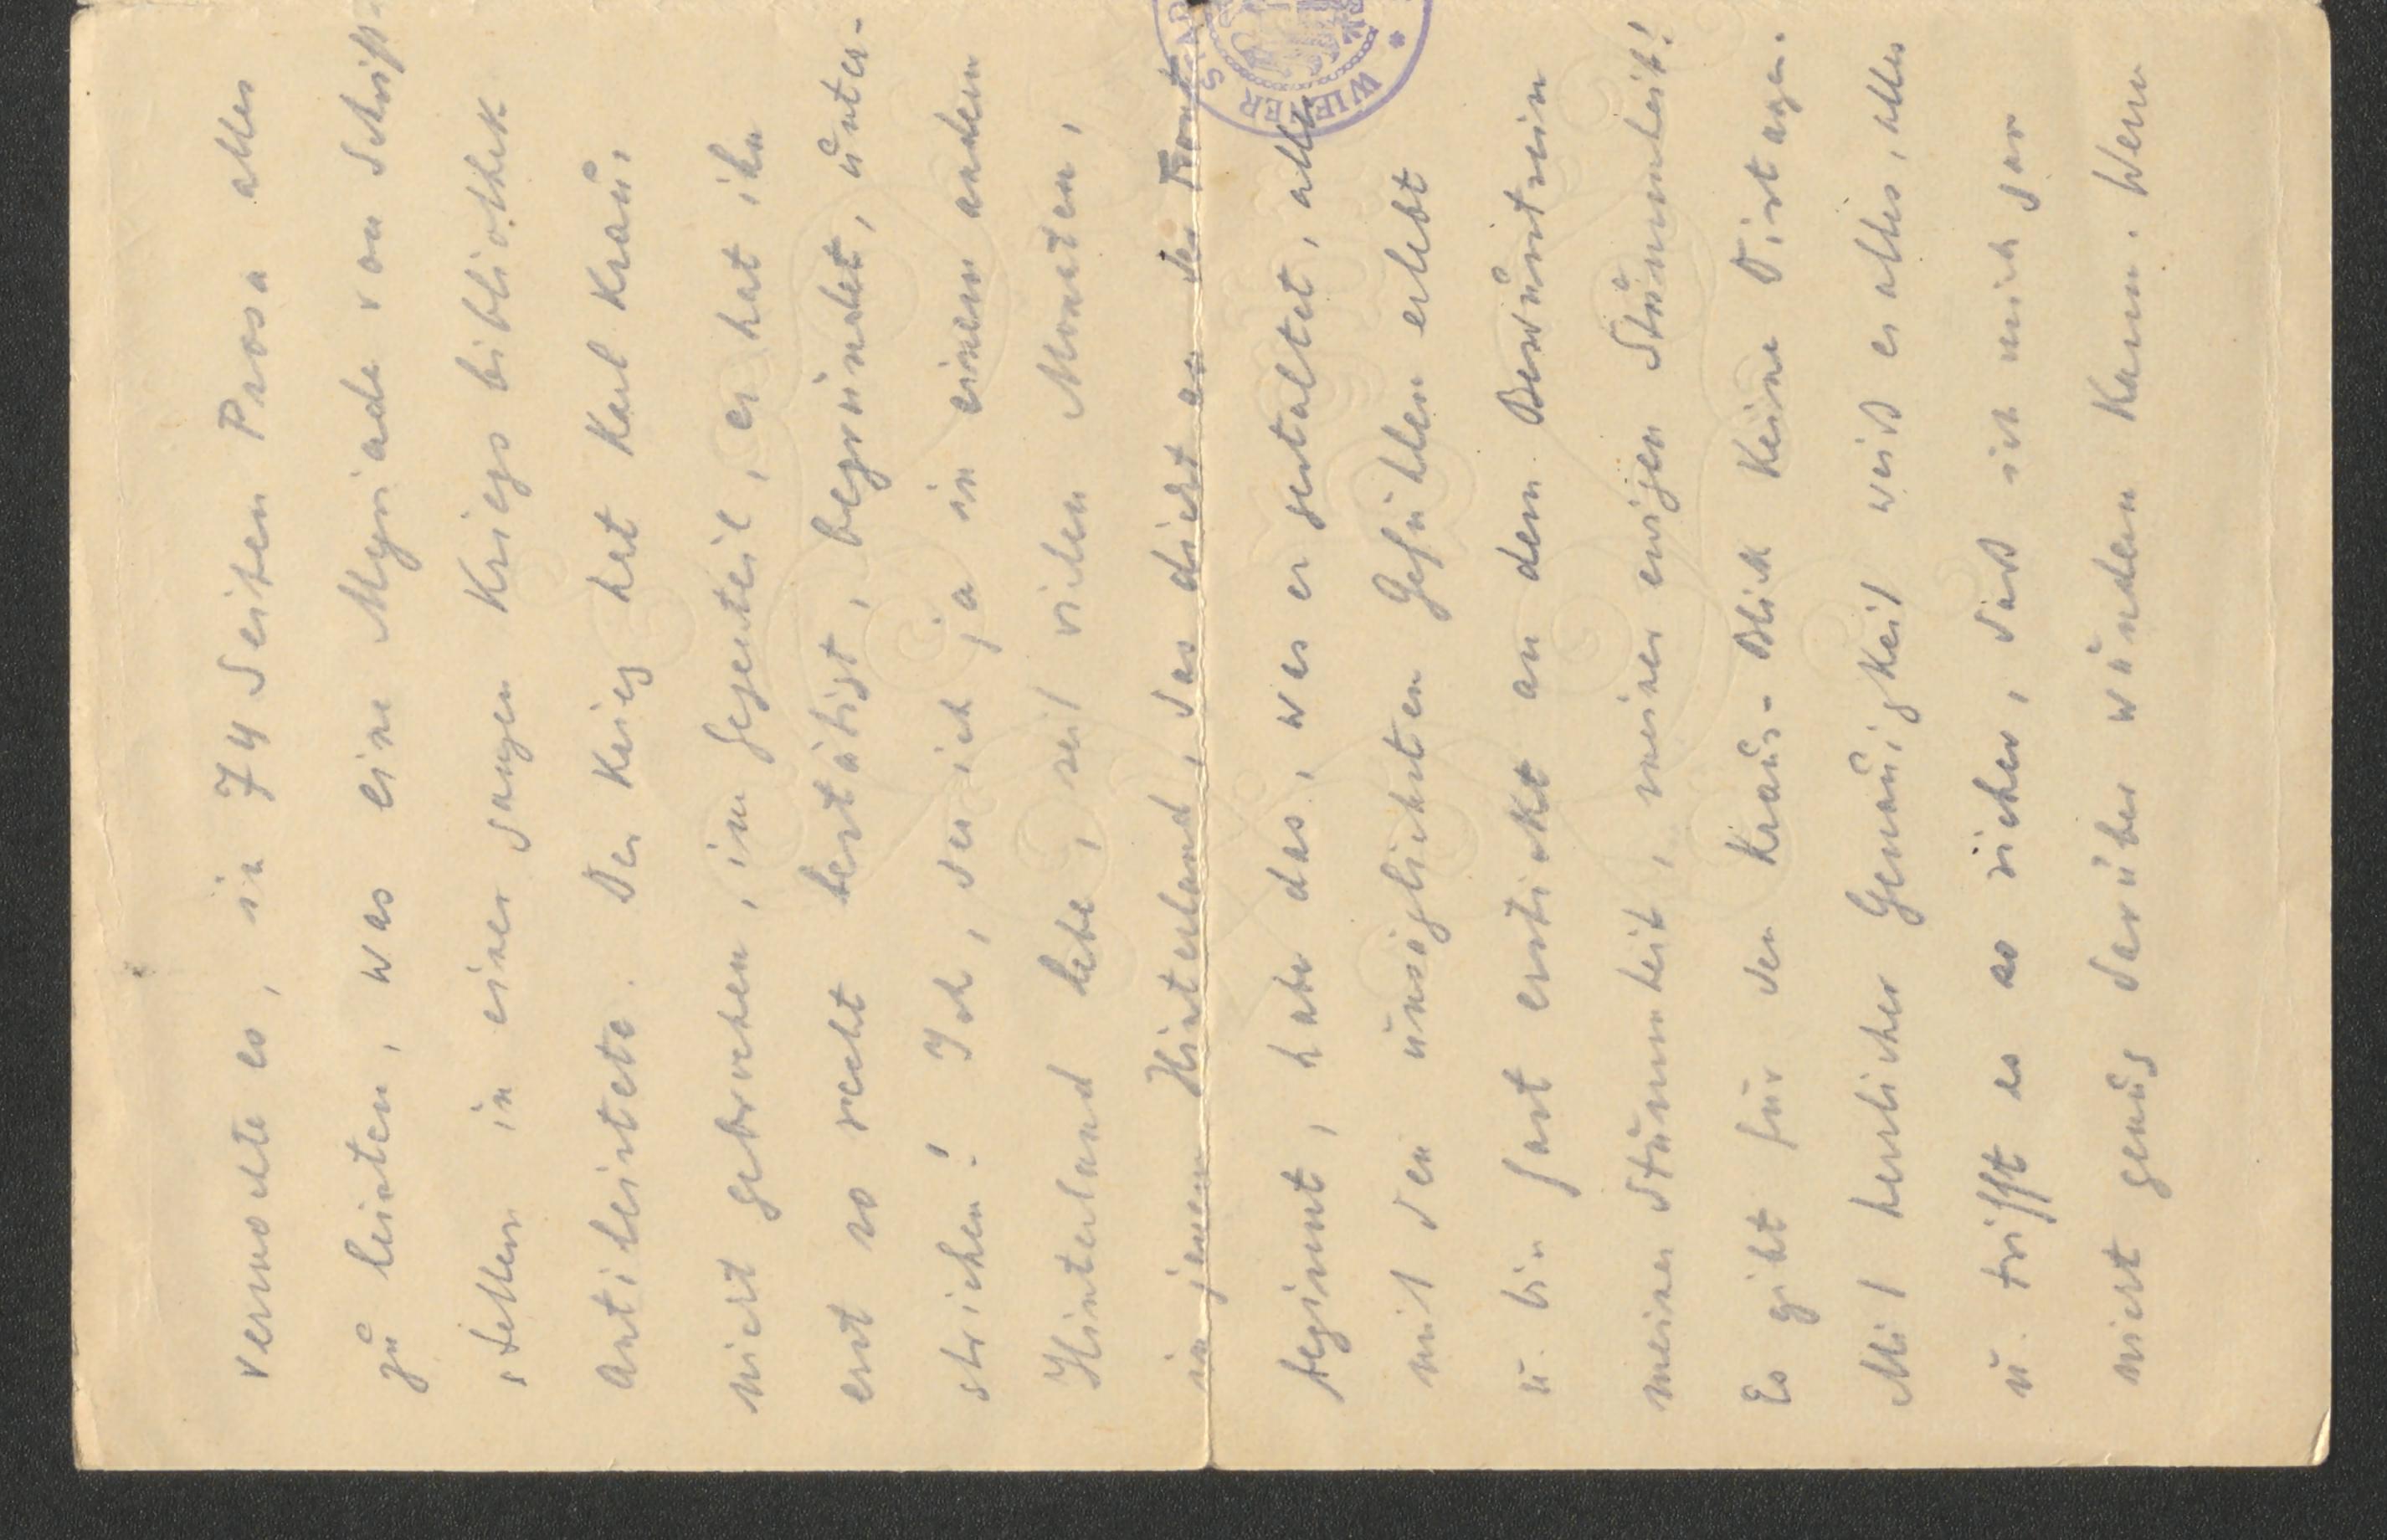 vermochte es, in 74 Seiten Prosa alles
zu leisten, was eine Myriade von Schrift-
stellern in einer ganzen Kriegsbibliothek
anti leistete. Der Krieg hat Karl Kraus
nicht gebrochen, im Gegenteil, er hat ihn
erst so recht bestätigt, begründet, unter-
strichen! Ich, der ich ja in einem andern
Hinterland lebe, seit vielen Monaten,
in jenem Hinterland, das dicht an der Front
beginnt, habe das, was er gestaltet, alles
mit den unsäglichsten Gefühlen erlebt
u. bin fast erstickt an dem Bewusstsein
meiner Stummheit, meiner ewigen Stummheit!
Es gibt für den Kraus-Blick keine Distanz.
Mit herrlicher Genauigkeit weiß er alles, alles
u. trifft es so sicher, daß ich mich gar
nicht genug darüber wundern kann. Wem
WIENER STAD